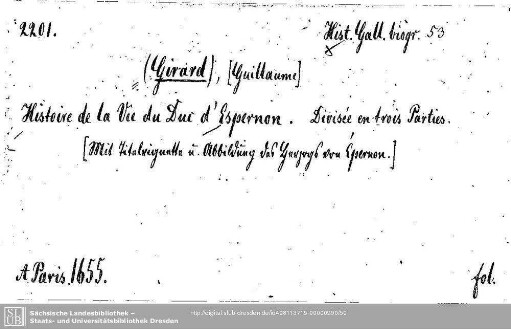 2201.
Hist. Gall. biogr. 53
(Girard), [Guillaume]
Histoire de la Vie du Duc d'Espernon. Divisée en trois Parties.
[Mit Titelvignette u. Abbildung des Herzogs von Epernon.]
A Paris, 1655.
fol.
Sächsische Landesbibliothek –
Staats- und Universitätsbibliothek Dresden